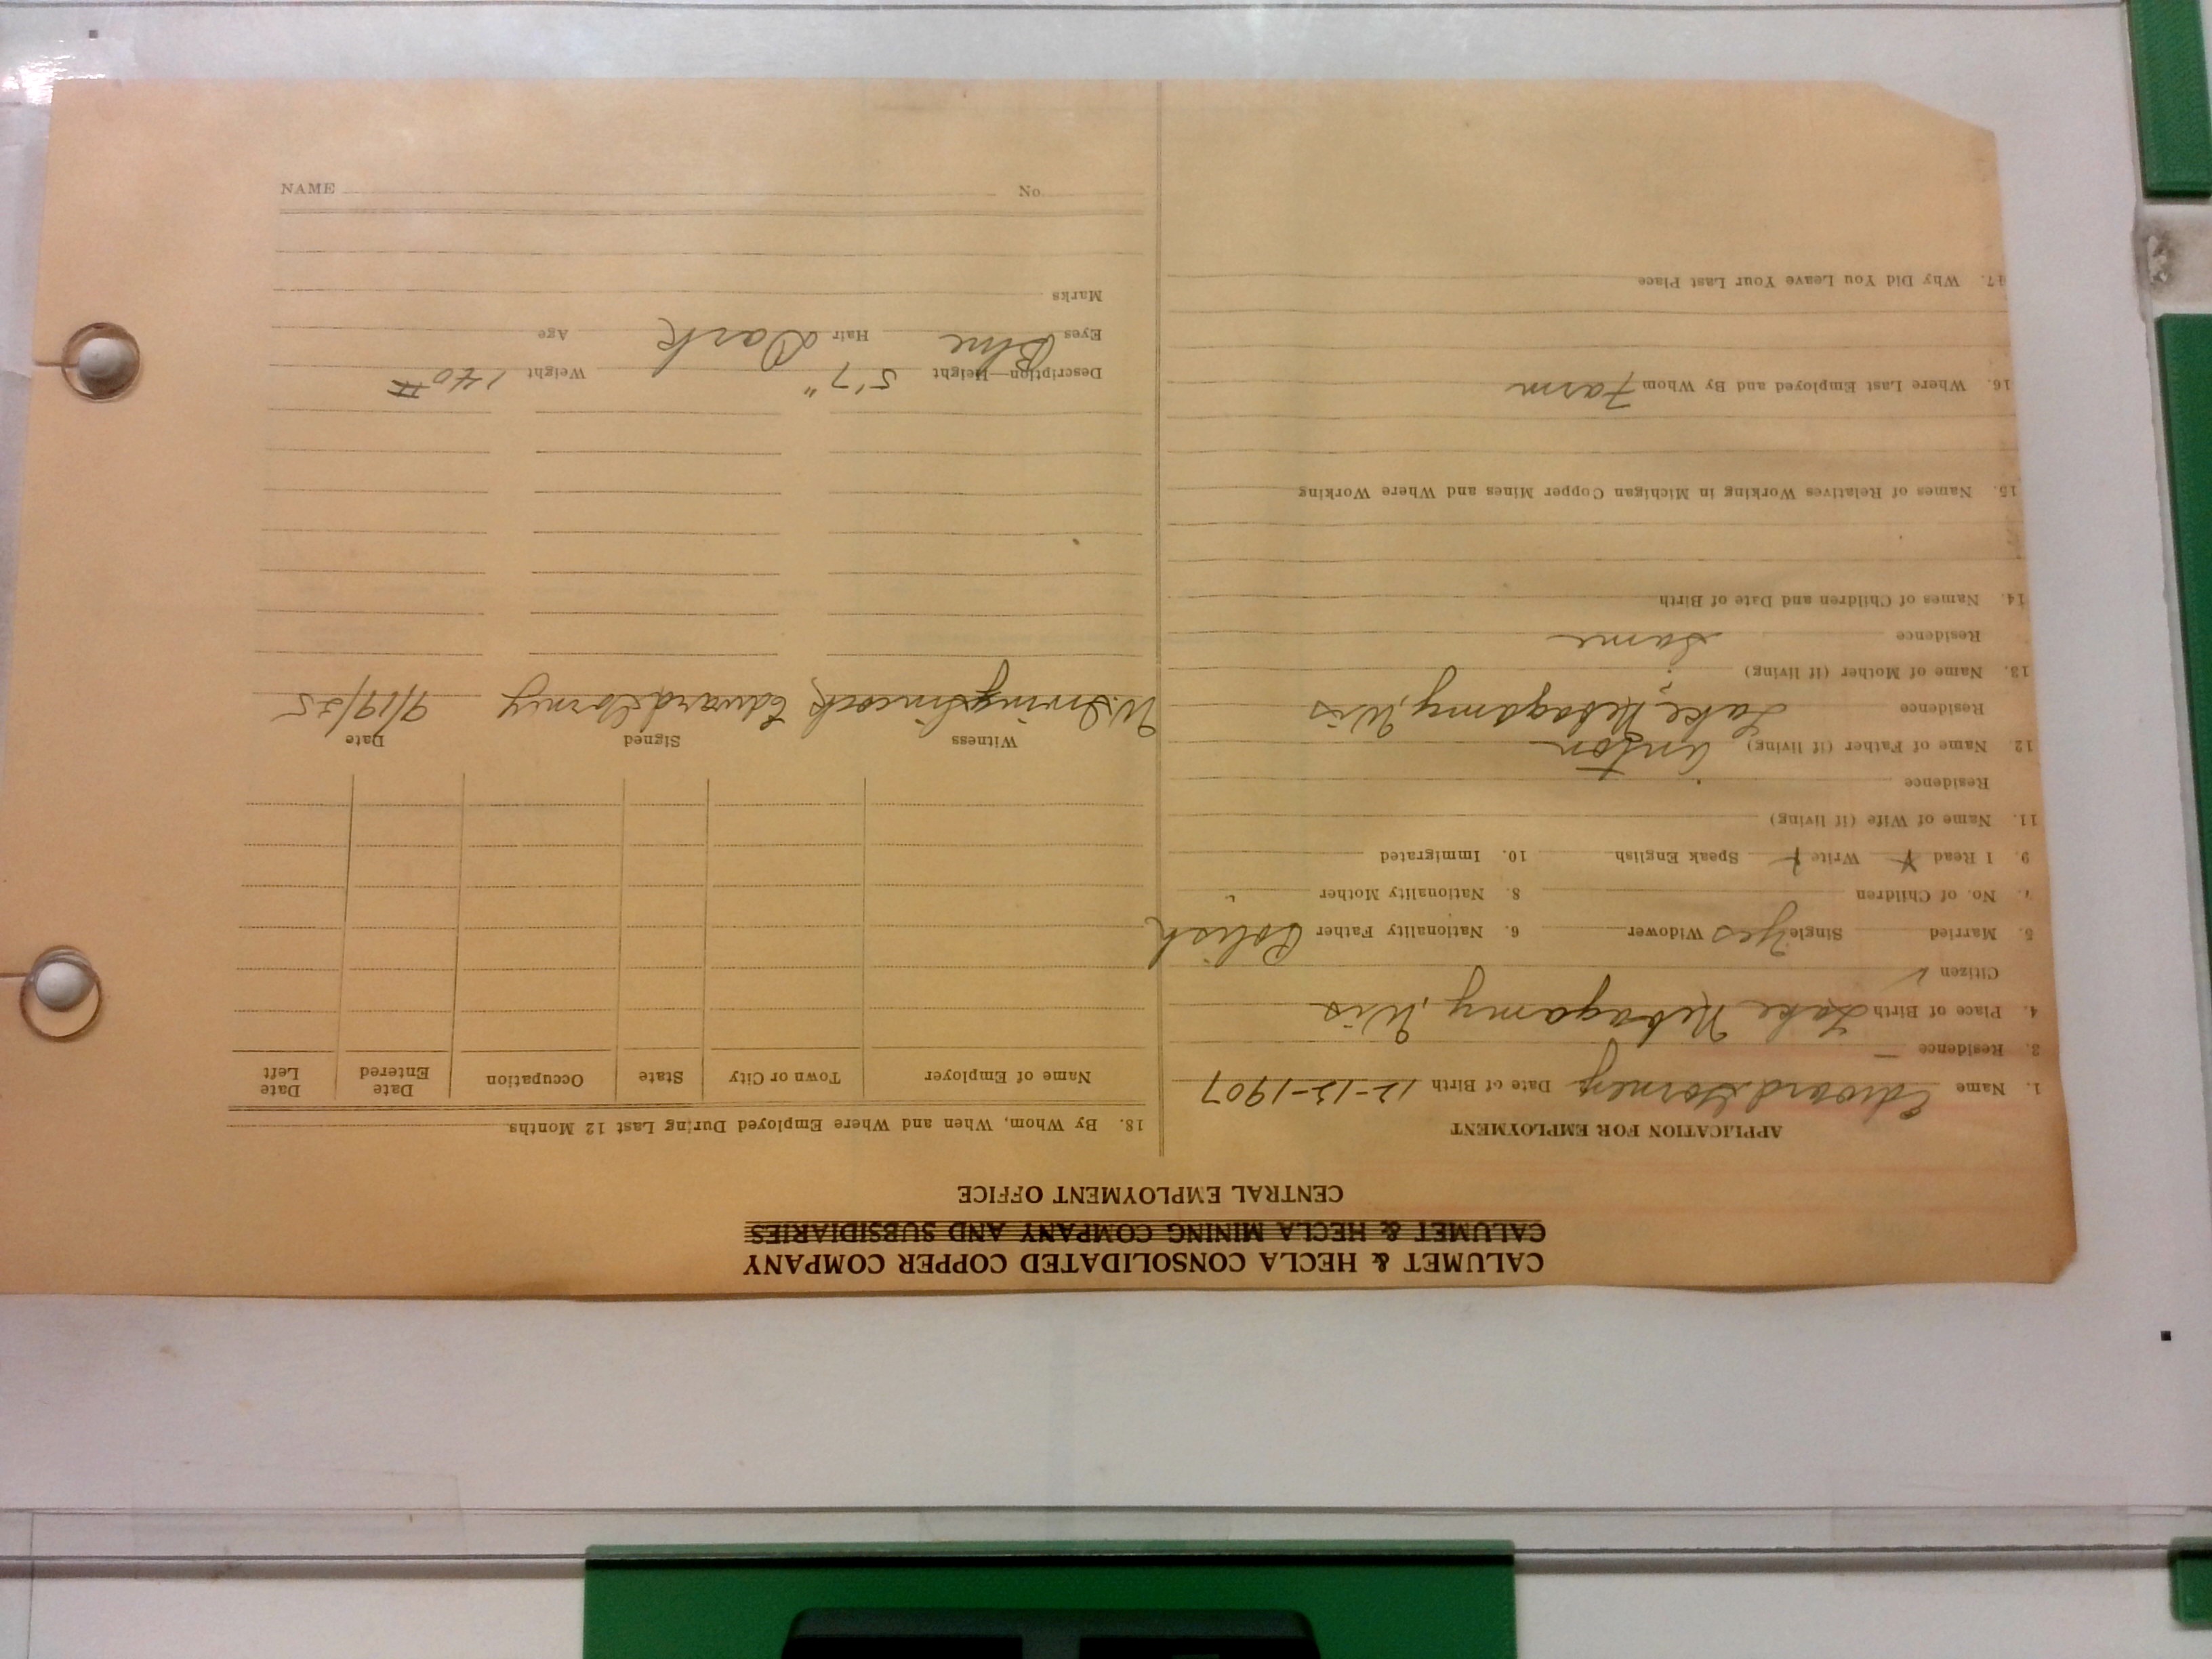 CALUMET & HECLA CONSOLIDATED COPPER COMPANY
CALUMET & HECLA MINING COMPANY AND SUBSIDIARIES
CENTRAL EMPLOYMENT OFFICE
APPLICATION FOR EMPLOYMENT
1. Name Edward Gorney Date of Birth 12-13-1907
3. Residence
4. Place of Birth Lake Nebagamy, Wis
Citizen ✓
5. Married Single Yes Widower 6. Nationality Father Polish
7. No. of Children 8. Nationality Mother
9. I Read Write Speak English 10. Immigrated
11. Name of Wife (if living)
Residence
12. Name of Father (if living) Anton
Residence Lake Nebagamy, Wis
13. Name of Mother (if living)
Residence Same
14. Names of Children and Date of Birth
15. Names of Relatives Working in Michigan Copper Mines and Where Working
16. Where Last Employed and By Whom Farm
17. Why Did You Leave Your Last Place
18. By Whom, When and Where Employed During Last 12 Months
Name of Employer Town or City State Occupation Date Entered Date Left
Witness Signed Date
W. Irving Sincock Edward Gorney 9/19/25
Description—Height 5'7" Weight 140 #
Eyes Blue Hair Dark Age
Marks
NAME No.